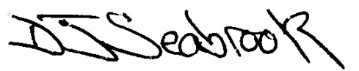 DJ Seabrook